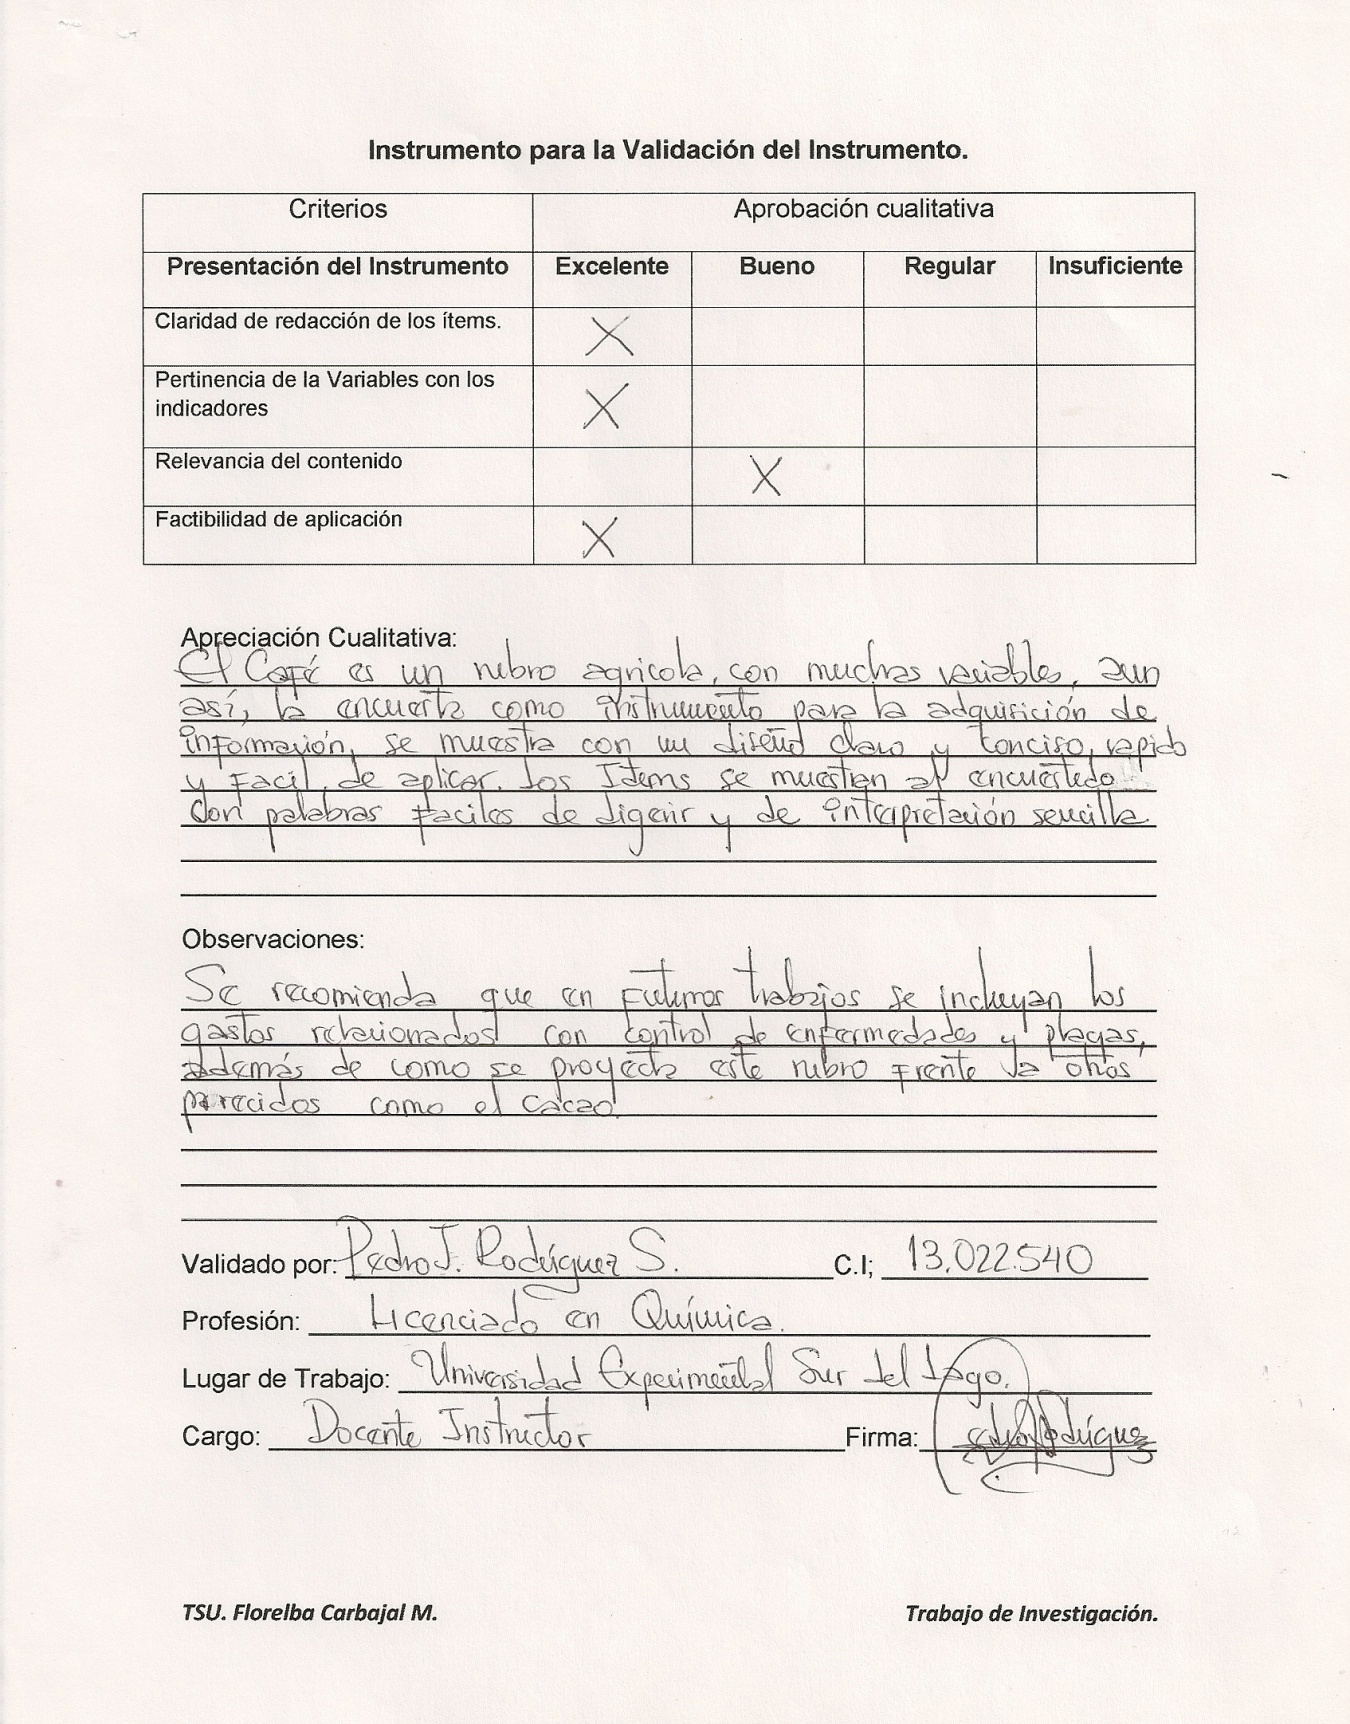 Instrumento para la Validación del Instrumento.
Criterios Aprobación cualitativa
Presentación del Instrumento Excelente Bueno Regular Insuficiente
Claridad de redacción de los ítems. X
Pertinencia de la Variables con los
indicadores X
Relevancia del contenido X
Factibilidad de aplicación X
Apreciación Cualitativa:
El Café es un rubro agricola, con muchas variables, aun
así, la encuesta como instrumento para la adquisición de
información, se muestra con un diseño claro y conciso, rapido
y facil de aplicar. Los Items se muestran al encuestado
con palabras faciles de digerir y de interpretación sencilla
Observaciones:
Se recomienda que en futuros trabajos se incluyan los
gastos relacionados con control de enfermedades y plagas,
además de como se proyecta este rubro frente a otros
parecidos como el cacao
Validado por: Pedro J. Rodríguez S. C.I; 13.022.540
Profesión: Licenciado en Química.
Lugar de Trabajo: Universidad Experimental Sur del Lago.
Cargo: Docente Instructor Firma:
TSU. Florelba Carbajal M. Trabajo de Investigación.